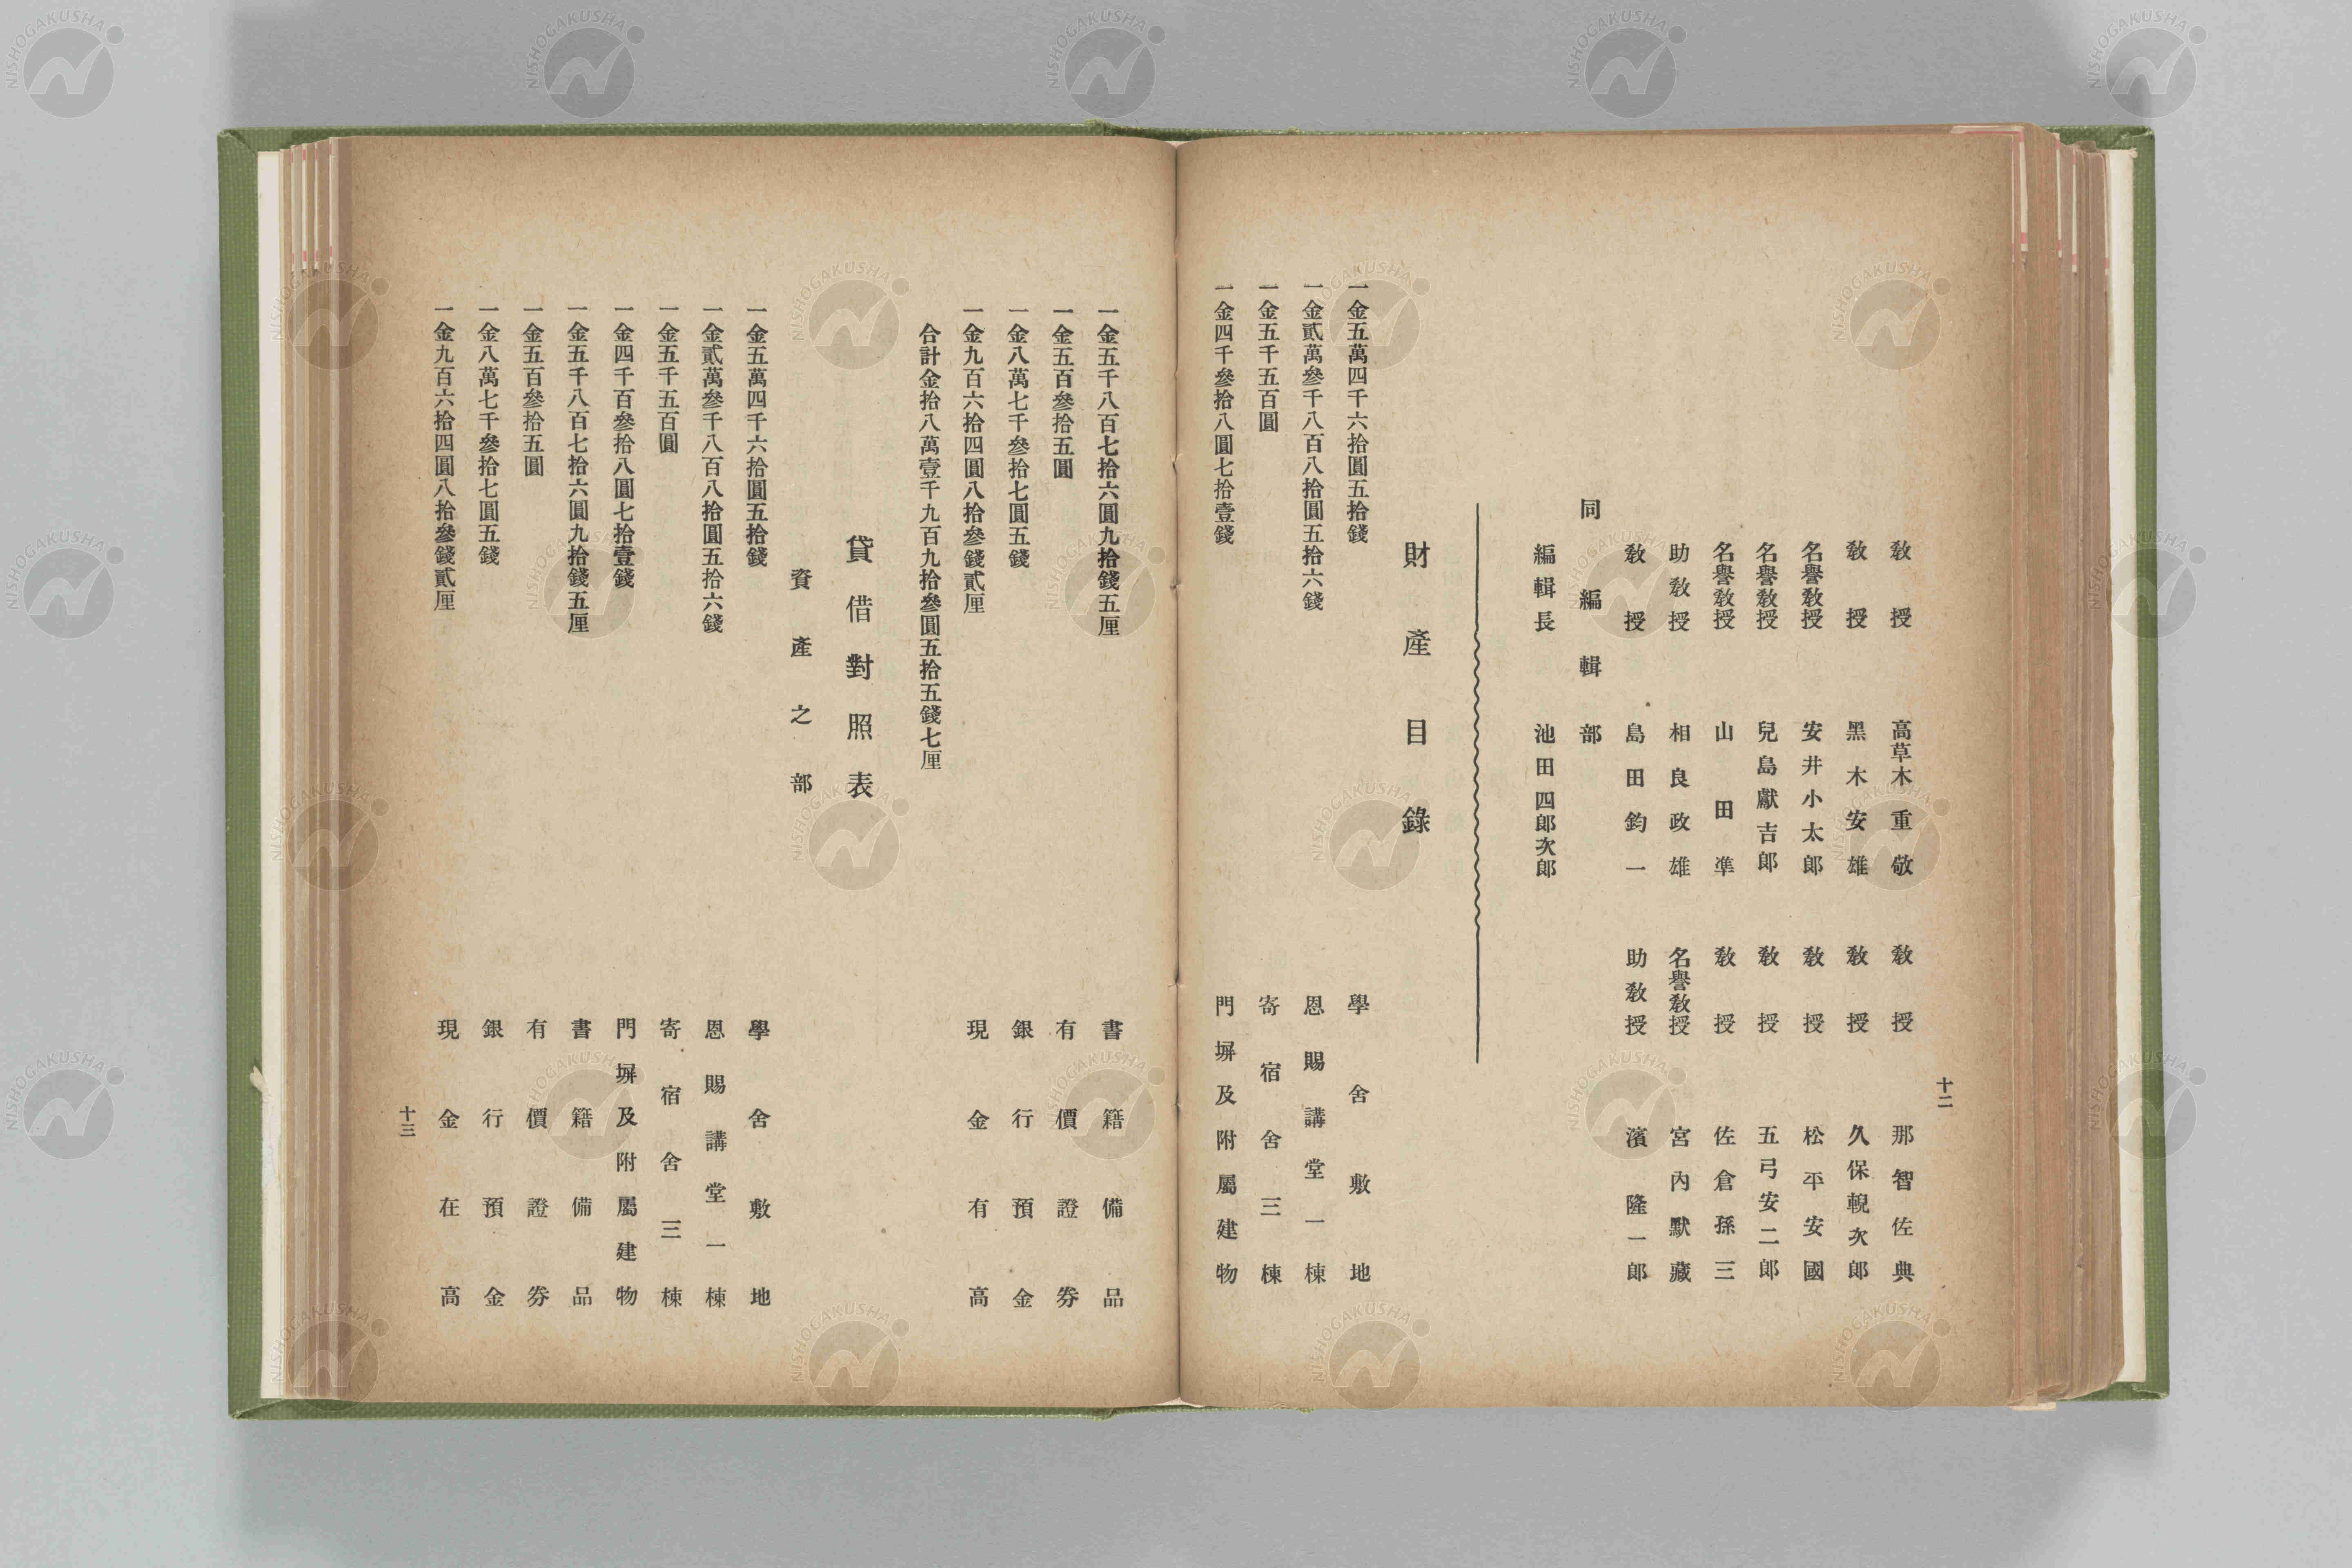 十二
教授 高草木重敬 教授 那智佐典
教授 黑木安雄 教授 久保輗次郎
名譽教授 安井小太郎 教授 松平安國
名譽教授 兒島獻吉郎 教授 五弓安二郎
名譽教授 山田準 教授 佐倉孫三
助教授 相良政雄 名譽教授 宮內默藏
教授 島田鈞一 助教授 濱隆一郎
同編輯部
編輯長 池田四郎次郎
財產目錄
一金五萬四千六拾圓五拾錢 學舍敷地
一金貳萬參千八百八拾圓五拾六錢 恩賜講堂一棟
一金五千五百圓 寄宿舍三棟
一金四千參拾八圓七拾壹錢 門塀及附屬建物
一金五千八百七拾六圓九拾錢五厘 書籍備品
一金五百參拾五圓 有價證券
一金八萬七千參拾七圓五錢 銀行預金
一金九百六拾四圓八拾參錢貳厘 現金有高
合計金拾八萬壹千九百九拾參圓五拾五錢七厘
貸借對照表
資產之部
一金五萬四千六拾圓五拾錢 學舍敷地
一金貳萬參千八百八拾圓五拾六錢 恩賜講堂一棟
一金五千五百圓 寄宿舍三棟
一金四千百參拾八圓七拾壹錢 門塀及附屬建物
一金五千八百七拾六圓九拾錢五厘 書籍備品
一金五百參拾五圓 有價證券
一金八萬七千參拾七圓五錢 銀行預金
一金九百六拾四圓八拾參錢貳厘 現金在高
十三
NISHOGAKUSHA